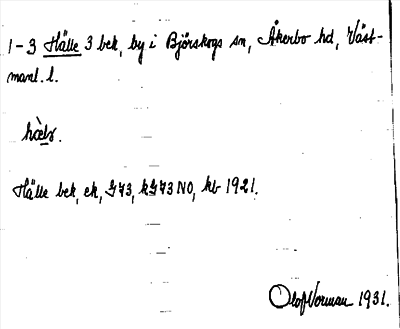 1-3 Hälle 3 bek, by i Björskogs sn, Åkerbo hd, Väst-
manl. l.
Hälle bek, ek, G73, kG73 NO, kb 1921.
Olof Norman 1931.